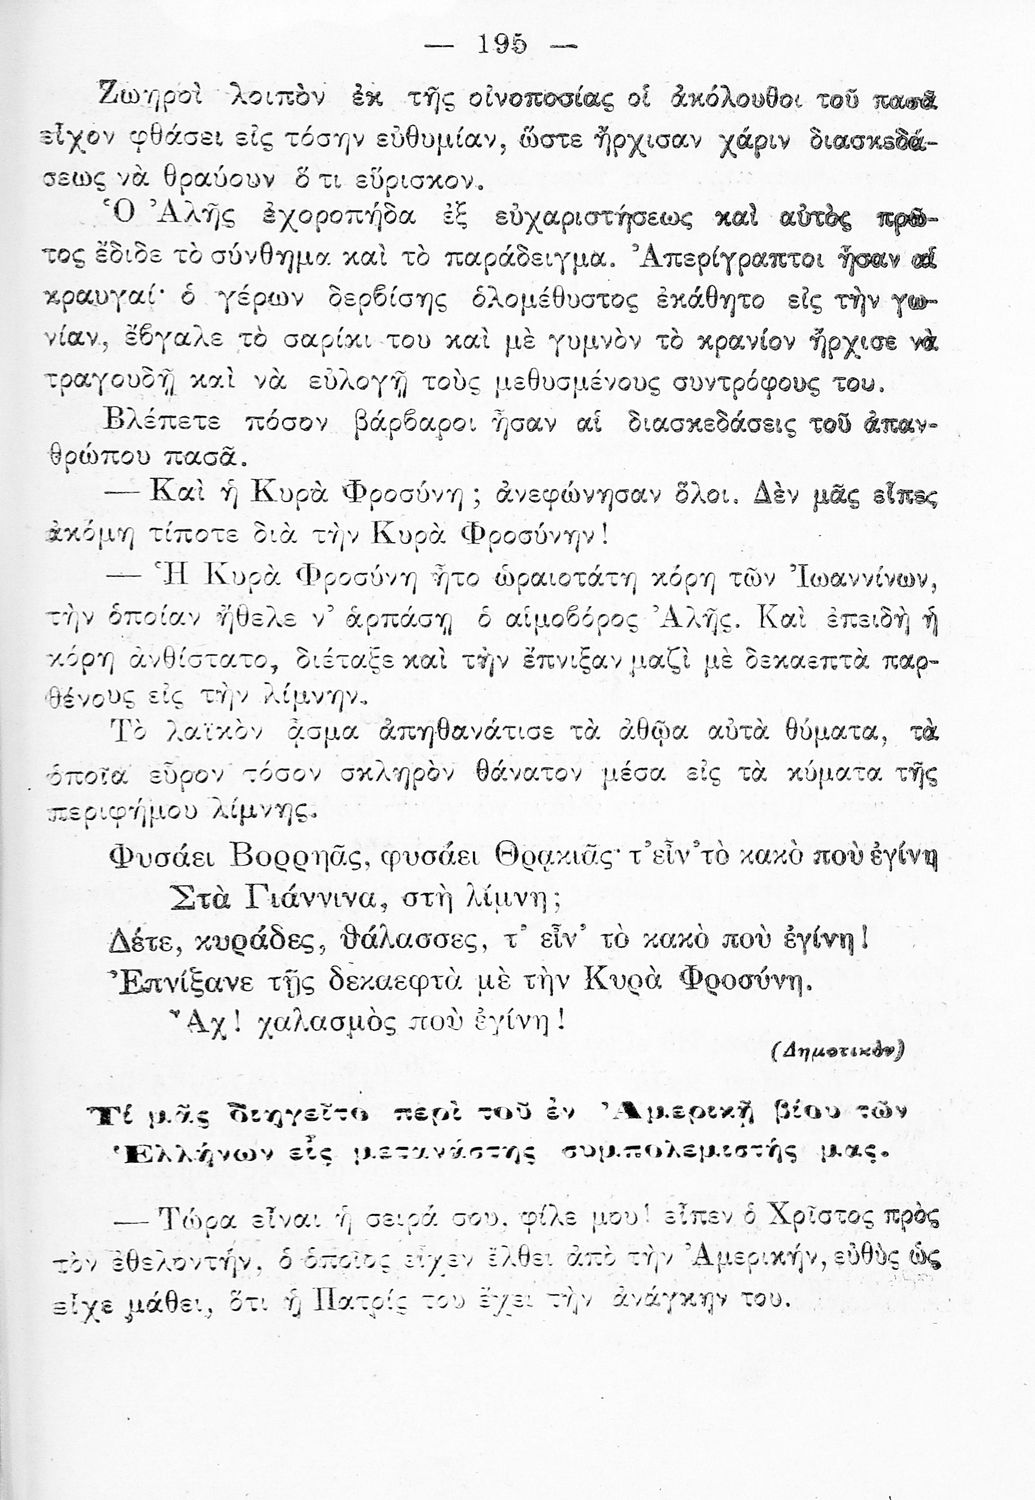 — 195 —
Ζωηροὶ λοιπὸν ἐκ τῆς οἰνοποσίας οἱ ἀκόλουθοι τοῦ πασᾶ
εἶχον φθάσει εἰς τόσην εὐθυμίαν, ὥστε ἤρχισαν χάριν διασκεδά-
σεως νὰ θραύουν ὅ τι εὕρισκον.
Ὁ Ἀλῆς ἐχοροπήδα ἐξ εὐχαριστήσεως καὶ αὐτὸς πρῶ-
τος ἔδιδε τὸ σύνθημα καὶ τὸ παράδειγμα. Ἀπερίγραπτοι ἦσαν αἱ
κραυγαί· ὁ γέρων δερβίσης ὁλομέθυστος ἐκάθητο εἰς τὴν γω-
νίαν, ἔβγαλε τὸ σαρίκι του καὶ μὲ γυμνὸν τὸ κρανίον ἤρχισε νὰ
τραγουδῇ καὶ νὰ εὐλογῇ τοὺς μεθυσμένους συντρόφους του.
Βλέπετε πόσον βάρβαροι ἦσαν αἱ διασκεδάσεις τοῦ ἀπαν-
θρώπου πασᾶ.
— Καὶ ἡ Κυρὰ Φροσύνη; ἀνεφώνησαν ὅλοι. Δὲν μᾶς εἶπες
ἀκόμη τίποτε διὰ τὴν Κυρὰ Φροσύνην!
— Ἡ Κυρὰ Φροσύνη ἦτο ὡραιοτάτη κόρη τῶν Ἰωαννίνων,
τὴν ὁποίαν ἤθελε ν’ ἁρπάσῃ ὁ αἱμοβόρος Ἀλῆς. Καὶ ἐπειδὴ ἡ
κόρη ἀνθίστατο, διέταξε καὶ τὴν ἔπνιξαν μαζὶ μὲ δεκαεπτὰ παρ-
θένους εἰς τὴν λίμνην.
Τὸ λαϊκὸν ᾆσμα ἀπηθανάτισε τὰ ἀθῷα αὐτὰ θύματα, τὰ
ὁποῖα εὗρον τόσον σκληρὸν θάνατον μέσα εἰς τὰ κύματα τῆς
περιφήμου λίμνης.
Φυσάει Βορρηᾶς, φυσάει Θρακιᾶς· τ’ εἶν’ τὸ κακὸ ποὺ ἐγίνη
Στὰ Γιάννινα, στὴ λίμνη;
Δέτε, κυράδες, θάλασσες, τ’ εἶν’ τὸ κακὸ ποὺ ἐγίνη!
Ἐπνίξανε τῇς δεκαεφτὰ μὲ τὴν Κυρὰ Φροσύνη.
Ἄχ! χαλασμὸς ποὺ ἐγίνη!
(Δημοτικὸν)
Τί μᾶς διηγεῖτο περὶ τοῦ ἐν Ἀμερικῇ βίου τῶν
Ἑλλήνων εἷς μετανάστης συμπολεμιστής μας.
— Τώρα εἶναι ἡ σειρά σου, φίλε μου! εἶπεν ὁ Χρῖστος πρὸς
τὸν ἐθελοντήν, ὁ ὁποῖος εἶχεν ἔλθει ἀπὸ τὴν Ἀμερικήν, εὐθὺς ὡς
εἶχε μάθει, ὅτι ἡ Πατρίς του ἔχει τὴν ἀνάγκην του.